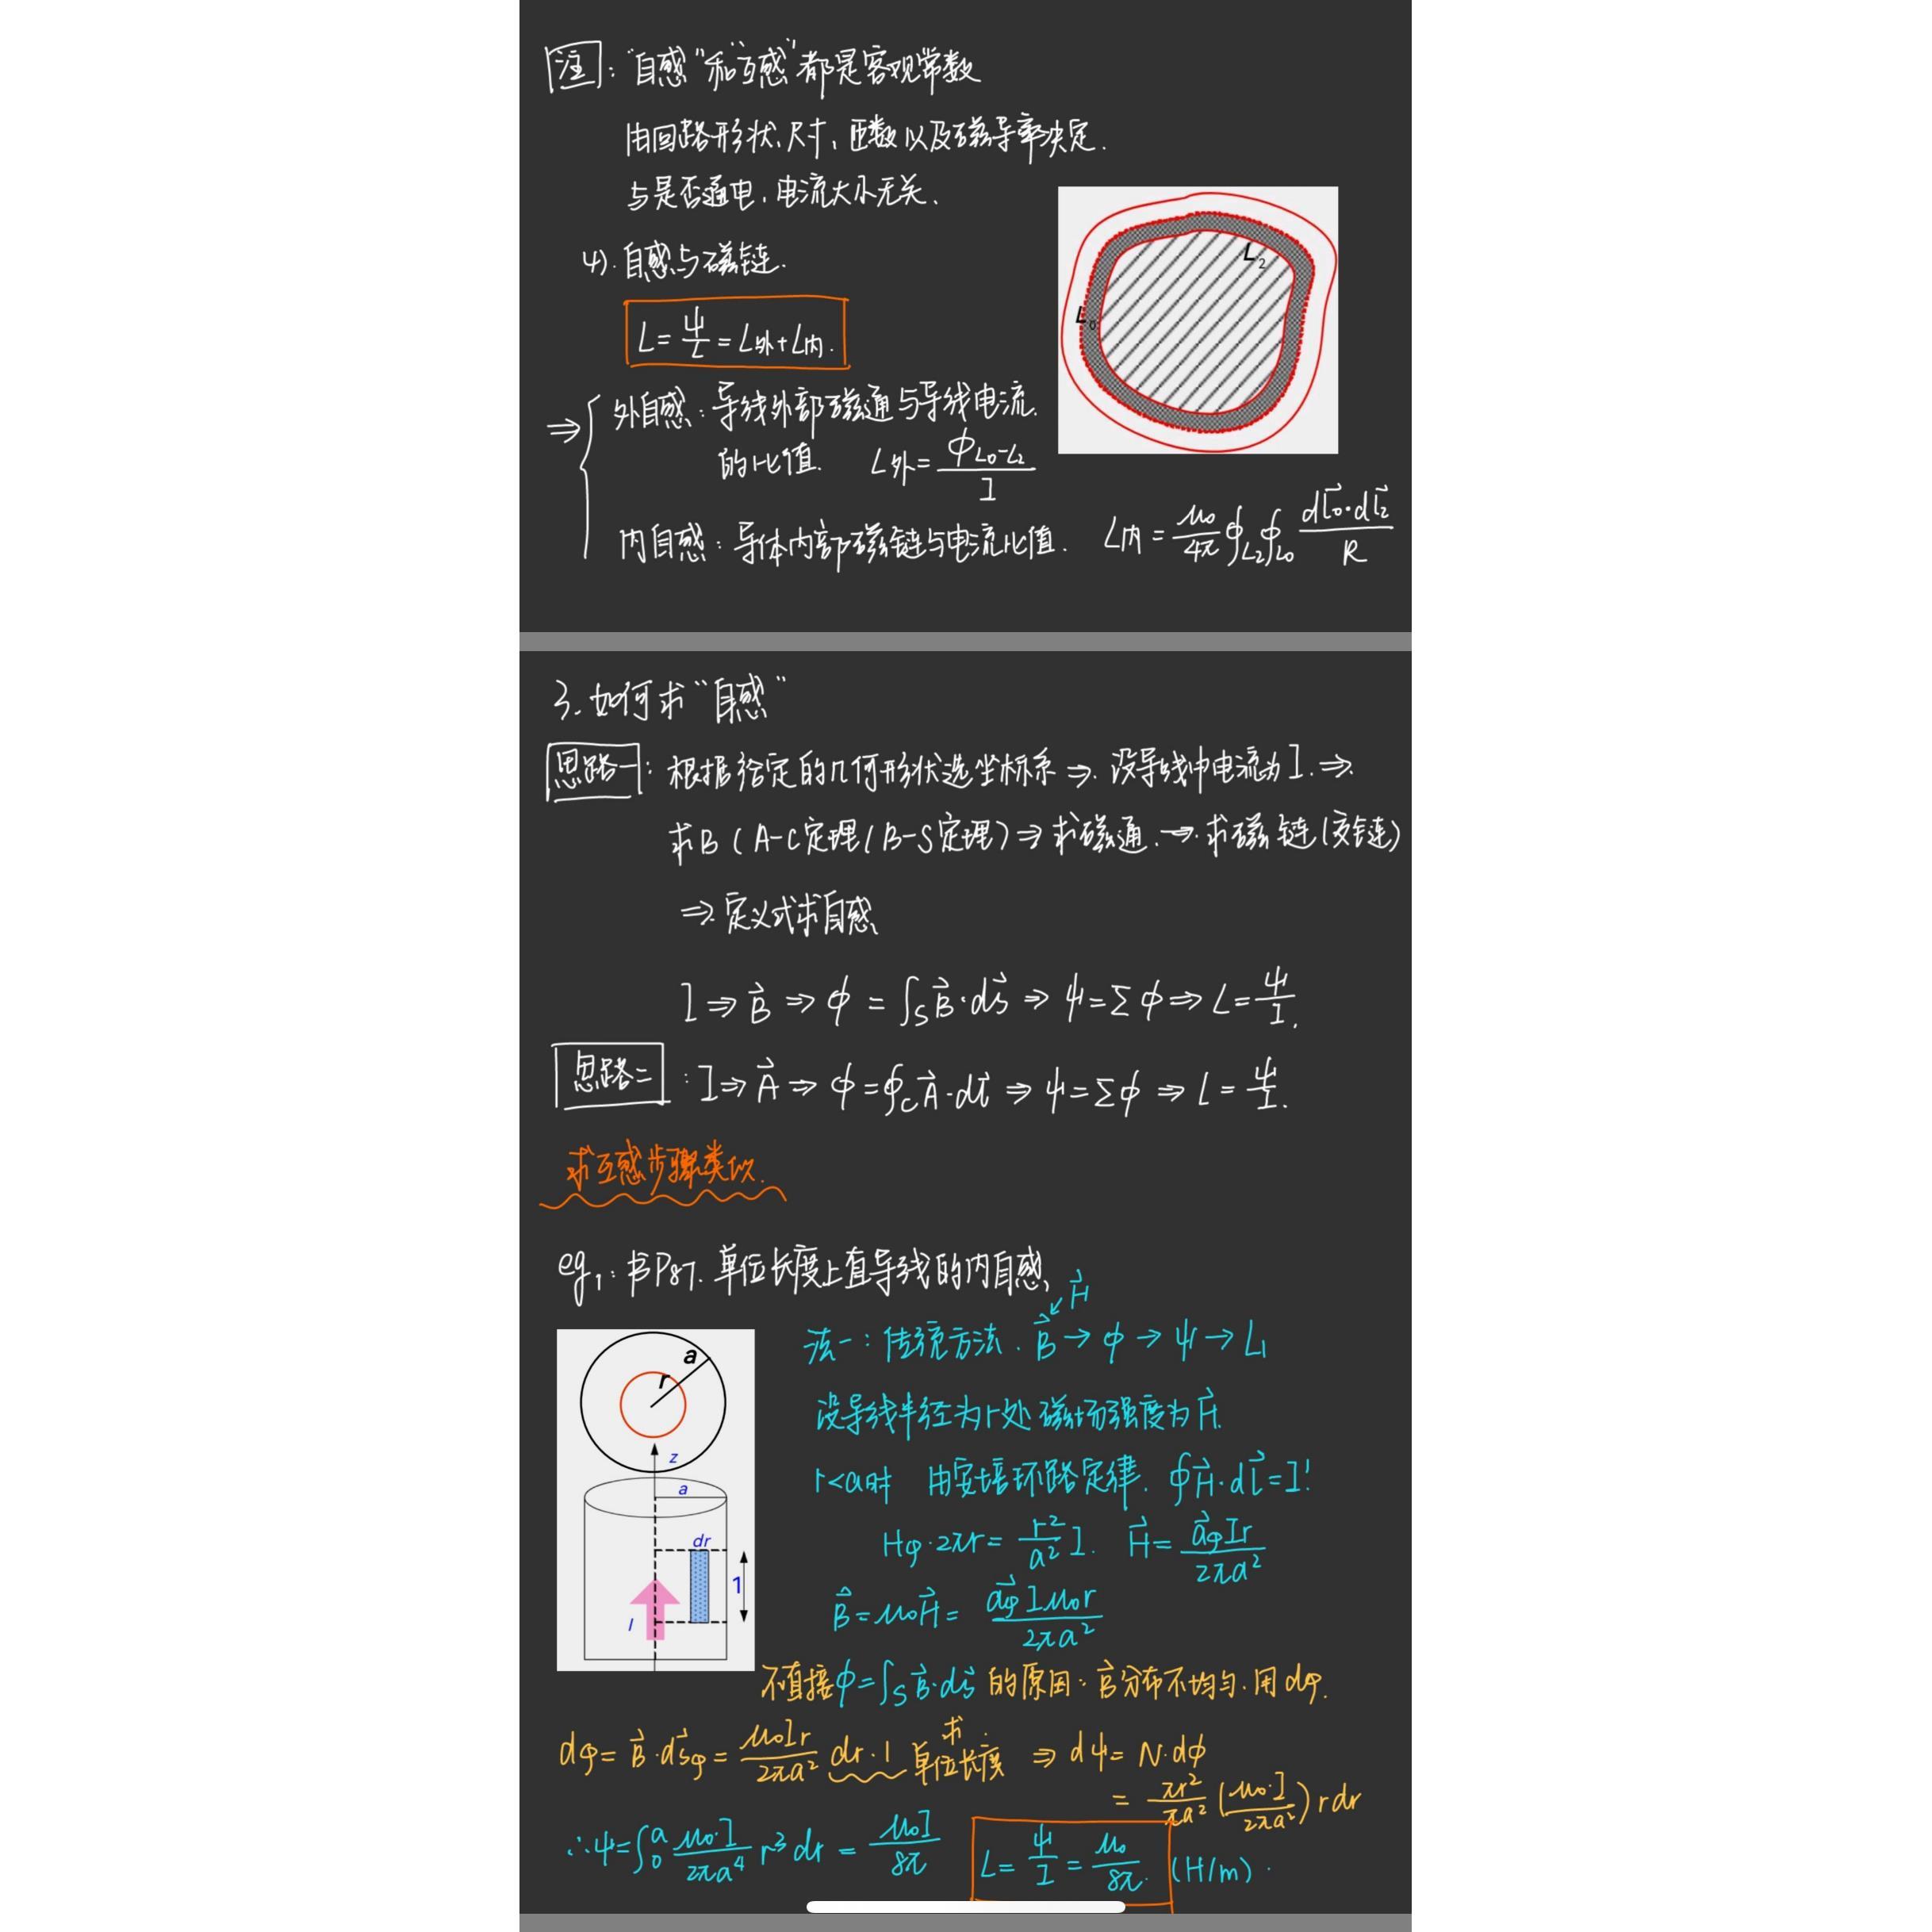 注：“自感”和“互感”都是客观常数
由回路形状、尺寸、匝数以及磁导率决定.
与是否通电,电流大小无关、
4). 自感与磁链.
L=Ψ/L=L外+L内.
L₂
L₀
⇒{ 外自感：导线外部磁通与导线电流.
的比值. L外=ϕL₀-L₂/I
内自感：导体内部磁链与电流比值. L内=μ₀/4π ∮L₂∮L₀ dl⃗₀·dl⃗₂/R
3.如何求“自感”
思路一：根据给定的几何形状选坐标系⇒.设导线中电流为I.⇒
求B(A-C定理(B-S定理)⇒求磁通.→.求磁链(交链)
⇒.定义式求自感、
I⇒B⃗⇒ϕ=∫s B⃗·ds⃗⇒Ψ=Σϕ⇒L=Ψ/I.
思路二：I⇒A⃗⇒ϕ=∮c A⃗·dl⃗⇒Ψ=Σϕ⇒L=Ψ/I.
求互感步骤类似.
eg1：书P87.单位长度上直导线的内自感、
H⃗
法一：传统方法.B⃗→ϕ→Ψ→L₁
设导线半径为r处磁场强度为H⃗.
r<a时 由安培环路定律.∮H⃗·dl⃗=I'
Hφ·2πr=r²/a² I. H⃗=a⃗φIr/2πa²
B⃗=μ₀H⃗=a⃗φIμ₀r/2πa²
a
r
z
a
dr
1
I
不直接ϕ=∫s B⃗·ds⃗的原因：B⃗分布不均匀.用dφ.
dφ=B⃗·ds⃗φ=μ₀Ir/2πa² dr·1 求单位长度⇒dΨ=N·dϕ
=πr²/πa²(μ₀·I/2πa²)rdr
∴Ψ=∫₀ᵃ μ₀·I/2πa⁴ r³dr=μ₀I/8π L=Ψ/I=μ₀/8π.(H/m).